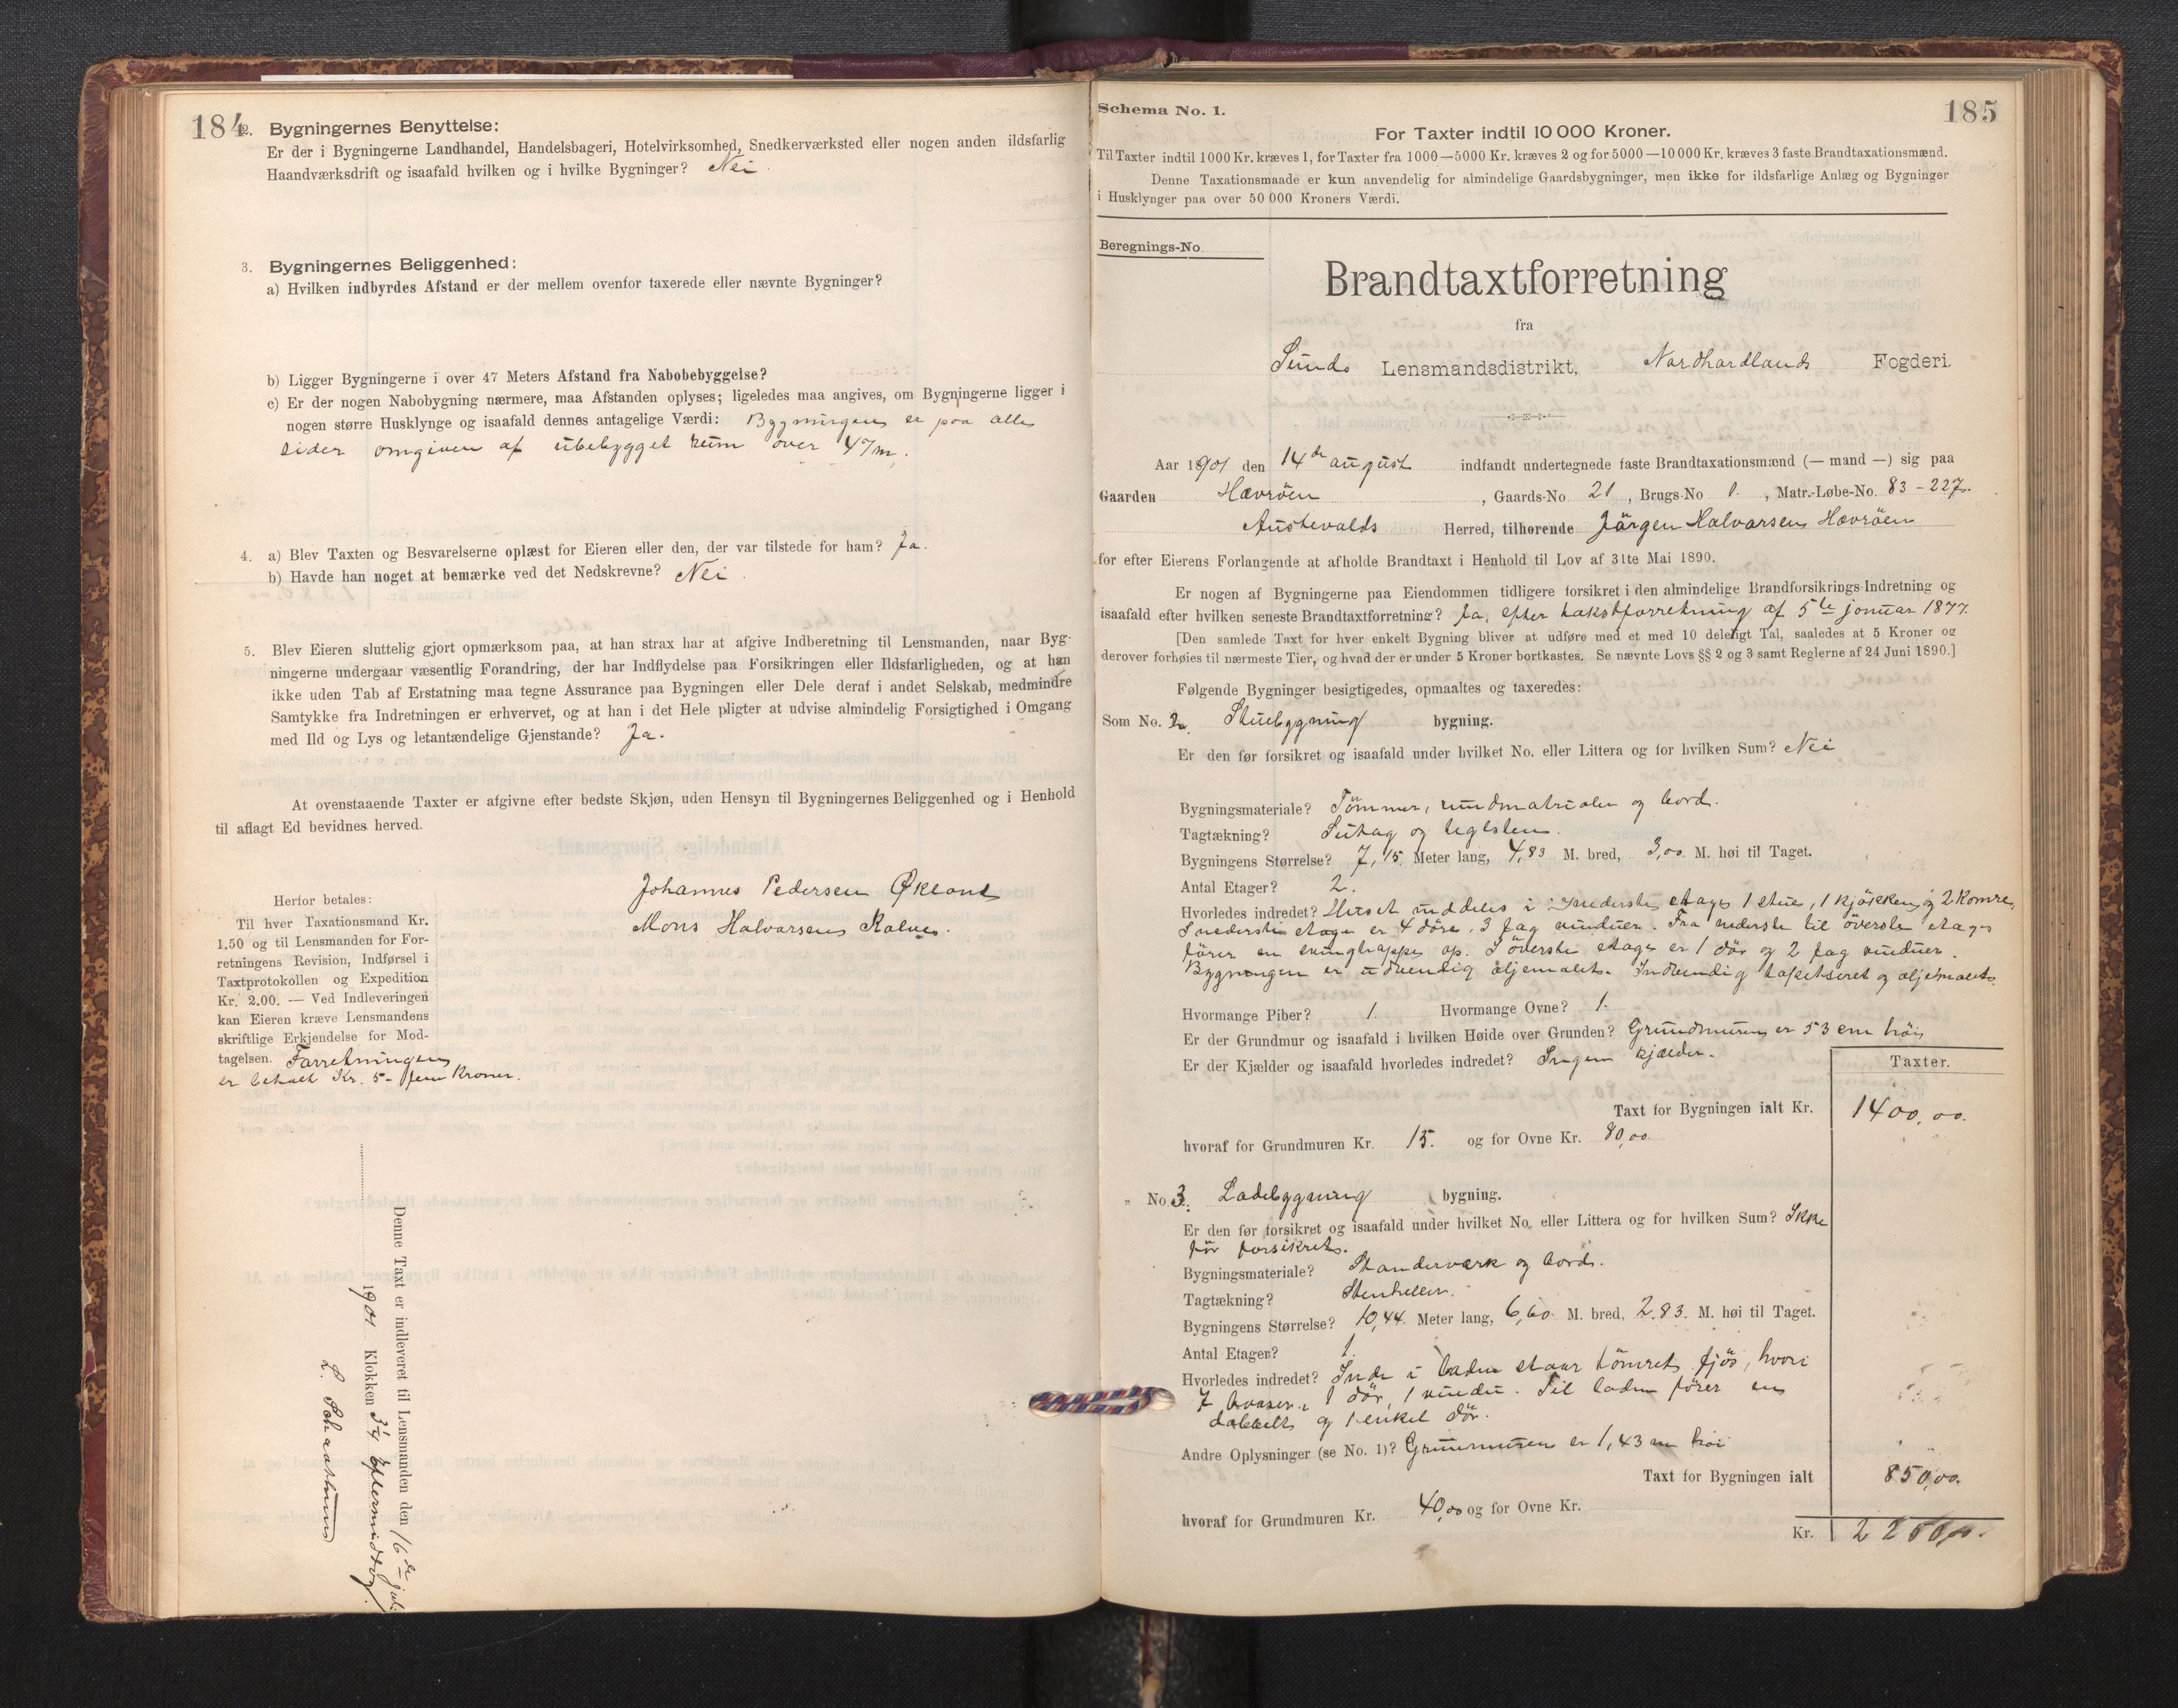 184
2. Bygningernes Benyttelse:
Er der i Bygningerne Landhandel, Handelsbageri, Hotelvirksomhed, Snedkerværksted eller nogen anden ildsfarlig
Haandværksdrift og isaafald hvilken og i hvilke Bygninger? Nei
3. Bygningernes Beliggenhed:
a) Hvilken indbyrdes Afstand er der mellem ovenfor taxerede eller nævnte Bygninger?
b) Ligger Bygningerne i over 47 Meters Afstand fra Nabobebyggelse?
c) Er der nogen Nabobygning nærmere, maa Afstanden oplyses; ligeledes maa angives, om Bygningerne ligger i
nogen større Husklynge og isaafald dennes antagelige Værdi: Bygningen er paa alle
sider omgiven af ubebygget rum over 47 m.
4. a) Blev Taxten og Besvarelserne oplæst for Eieren eller den, der var tilstede for ham? Ja.
b) Havde han noget at bemærke ved det Nedskrevne? Nei
5. Blev Eieren sluttelig gjort opmærksom paa, at han strax har at afgive Indberetning til Lensmanden, naar Byg-
ningerne undergaar væsentlig Forandring, der har Indflydelse paa Forsikringen eller Ildsfarligheden, og at han
ikke uden Tab af Erstatning maa tegne Assurance paa Bygningen eller Dele deraf i andet Selskab, medmindre
Samtykke fra Indretningen er erhvervet, og at han i det Hele pligter at udvise almindelig Forsigtighed i Omgang
med Ild og Lys og letantændelige Gjenstande? Ja.
At ovenstaaende Taxter er afgivne efter bedste Skjøn, uden Hensyn til Bygningernes Beliggenhed og i Henhold
til aflagt Ed bevidnes herved.
Johannes Pedersen Økland
Mons Halvorsen Kalve.
Herfor betales:
Til hver Taxationsmand Kr.
1.50 og til Lensmanden for For-
retningens Revision, Indførsel i
Taxtprotokollen og Expedition
Kr. 2.00. — Ved Indleveringen
kan Eieren kræve Lensmandens
skriftlige Erkjendelse for Mod-
tagelsen. Forretningen
er betalt Kr. 5- fem Kroner.
Denne Taxt er indleveret til Lensmanden den 16de juli
1901 Klokken 3 1/4 Eftermiddag.
185
Schema No. 1.
For Taxter indtil 10 000 Kroner.
Til Taxter indtil 1000 Kr. kræves 1, for Taxter fra 1000—5000 Kr. kræves 2 og for 5000—10000 Kr. kræves 3 faste Brandtaxationsmænd.
Denne Taxationsmaade er kun anvendelig for almindelige Gaardsbygninger, men ikke for ildsfarlige Anlæg og Bygninger
i Husklynger paa over 50 000 Kroners Værdi.
Beregnings-No.
Brandtaxtforretning
fra
Sunds Lensmandsdistrikt, Nordhordlands Fogderi.
Aar 1901 den 14de august indfandt undertegnede faste Brandtaxationsmænd (— mand —) sig paa
Gaarden Hævröen, Gaards-No. 21, Brugs-No 1., Matr.-Løbe-No. 83 - 227.
Austevolds Herred, tilhørende Jörgen Halvorsen Hævröen
for efter Eierens Forlangende at afholde Brandtaxt i Henhold til Lov af 31te Mai 1890.
Er nogen af Bygningerne paa Eiendommen tidligere forsikret i den almindelige Brandforsikrings-Indretning og
isaafald efter hvilken seneste Brandtaxtforretning? Ja, efter takstforretning af 5te januar 1877.
[Den samlede Taxt for hver enkelt Bygning bliver at udføre med et med 10 deleligt Tal, saaledes at 5 Kroner og
derover forhøies til nærmeste Tier, og hvad der er under 5 Kroner bortkastes. Se nævnte Lovs §§ 2 og 3 samt Reglerne af 24 Juni 1890.]
Følgende Bygninger besigtigedes, opmaaltes og taxeredes:
Som No. 2. Stuebygning bygning.
Er den før forsikret og isaafald under hvilket No. eller Littera og for hvilken Sum? Nei
Bygningsmateriale? Tömmer, og bord.
Tagtækning? Sutag og teglsten.
Bygningens Størrelse? 7,15 Meter lang, 4,83 M. bred, 3,00 M. høi til Taget.
Antal Etager? 2.
Hvorledes indredet? Huset inddeles i: I nederste etage 1 stue, 1 kjökken og 2 Komre.
I nederste etage er 4 döre, 3 fag vinduer. Fra nederste til överste etage
förer en svingtrappe op. I överste etage er 1 dör og 2 fag vinduer.
Bygningen er udvendig oljemalet. Indvendig tapetseret og oljemalet.
Hvormange Piber? 1. Hvormange Ovne? 1.
Er der Grundmur og isaafald i hvilken Høide over Grunden? Grundmuren er 53 cm höi
Er der Kjælder og isaafald hvorledes indredet? Ingen kjælder.
Taxter.
Taxt for Bygningen ialt Kr. 1400,00.
hvoraf for Grundmuren Kr. 15. og for Ovne Kr. 80,00.
" No. 3. Ladebygning bygning.
Er den før forsikret og isaafald under hvilket No. eller Littera og for hvilken Sum? Ikke
för forsikret.
Bygningsmateriale? Standerværk og bord.
Tagtækning? Stenheller.
Bygningens Størrelse? 10,44 Meter lang, 6,60 M. bred, 2.83. M. høi til Taget.
Antal Etager? 1.
Hvorledes indredet? Inde i laden staar tömret fjös, hvori
7 baaser, 1 dör, 1 vindu. Til laden förer en
dobbelt og 1 enkel dör.
Andre Oplysninger (se No. 1)? Grunmuren er 1,43 m höi
Taxt for Bygningen ialt 850,00.
hvoraf for Grundmuren Kr. 40,00 og for Ovne Kr.
Kr. 2250,00.